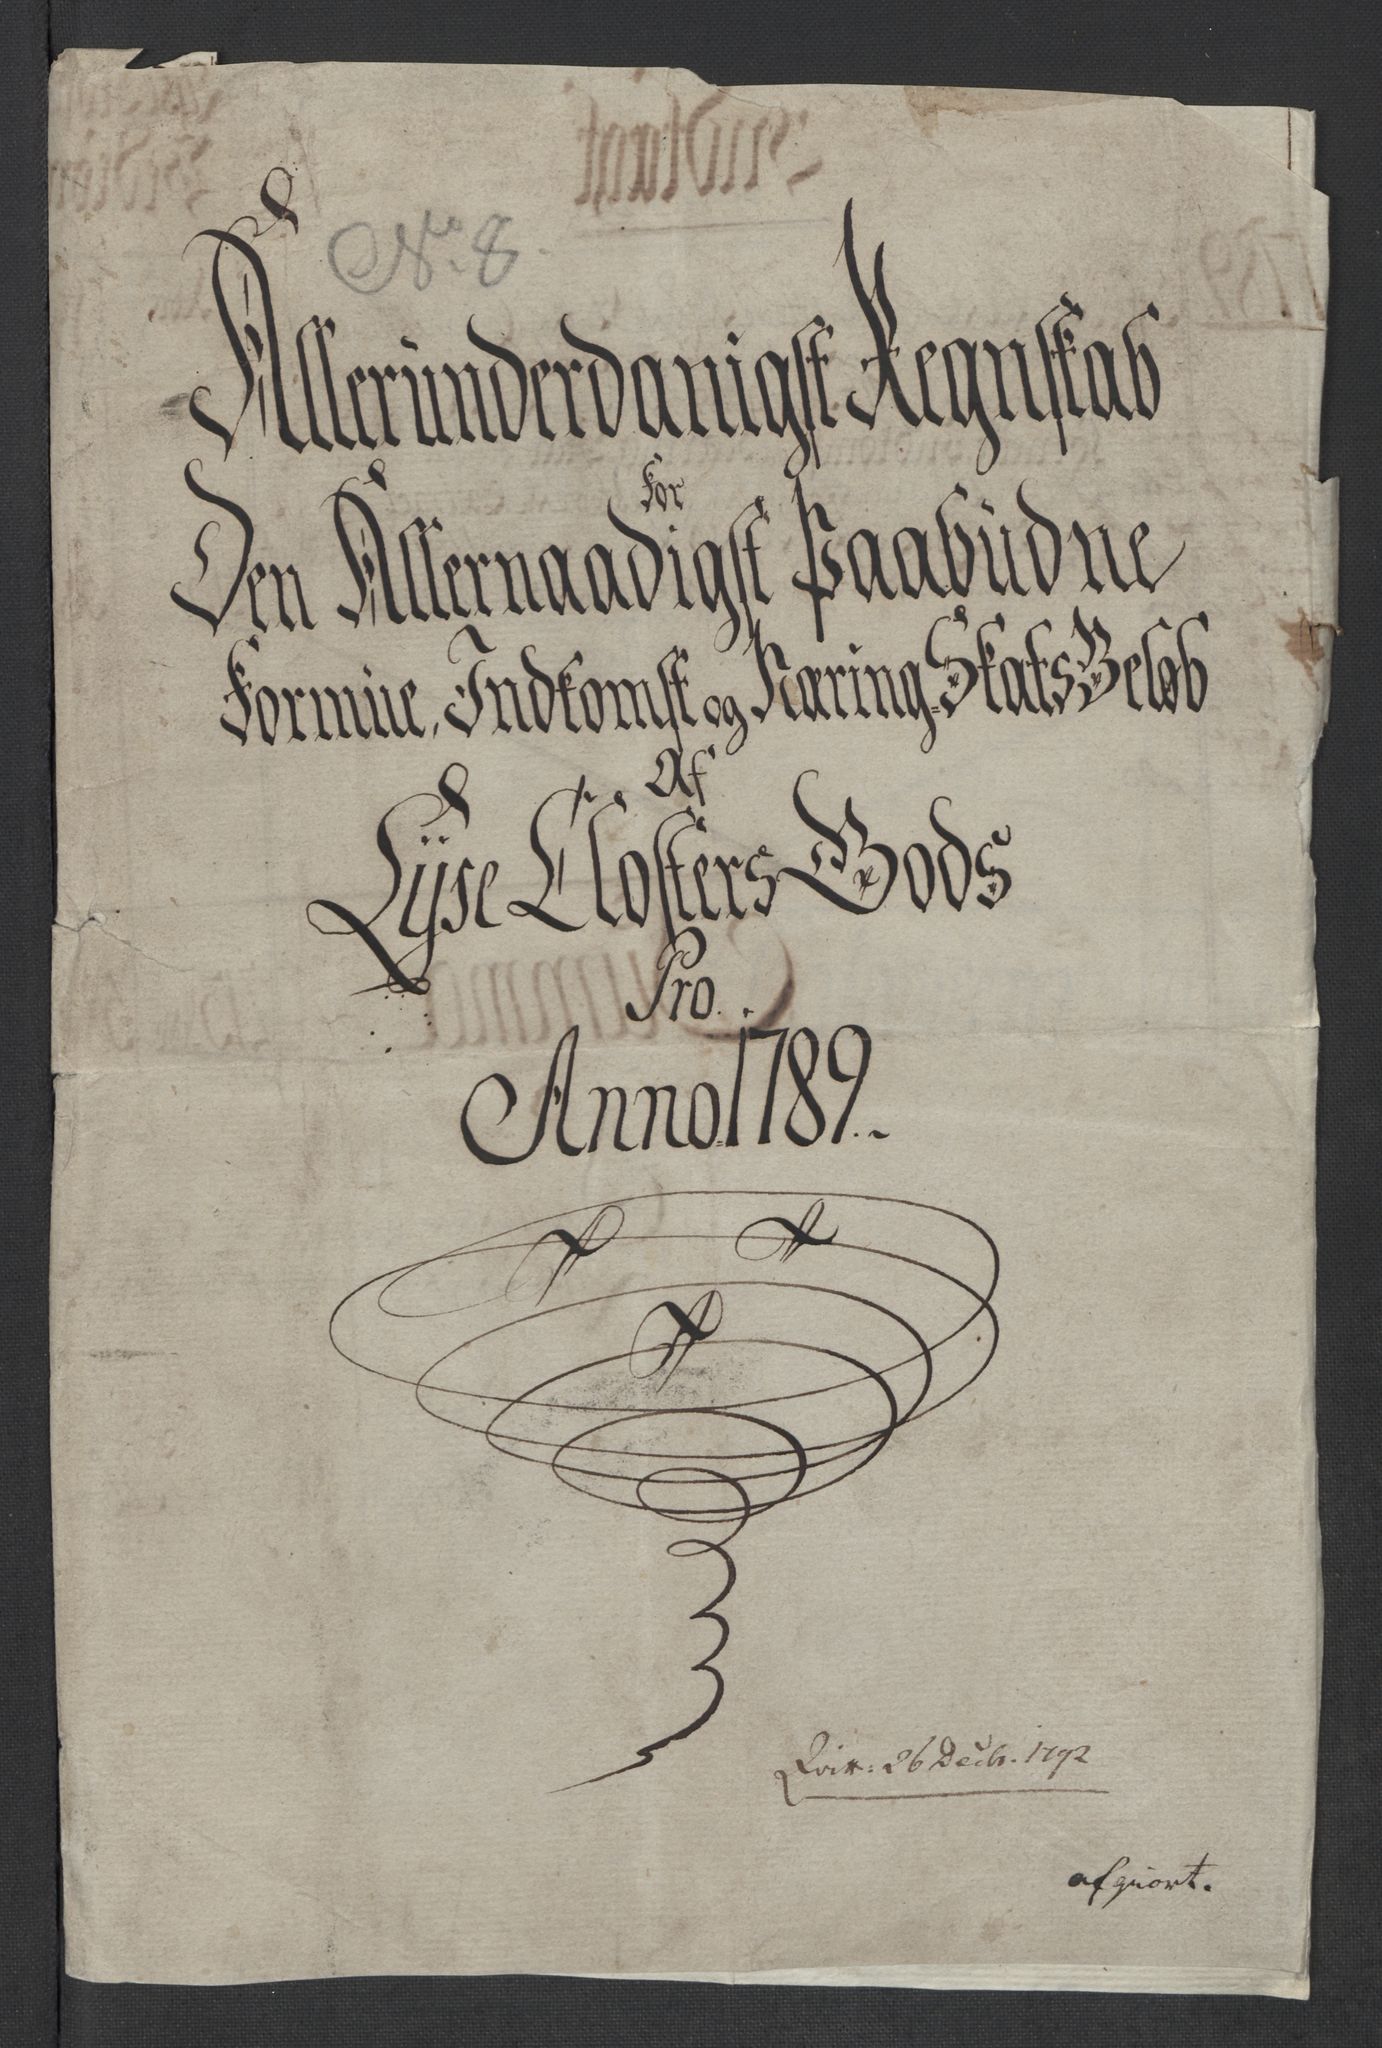 No. 8.
Alleründerdanigst Regnskab
for
Den Allernaadigst Paabüdne
Formüe, Indkomst og Næring-Skats Beløb
Af
Lÿse Closters Gods
Pro.
Anno 1789.
Qvit: 26 Decbr. 1792
afgiort.